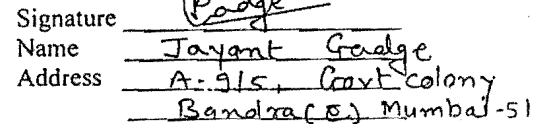 Signature
Name Jayant Gadge
Address A-9/5, Govt colony
Bandra (E) Mumbai-51